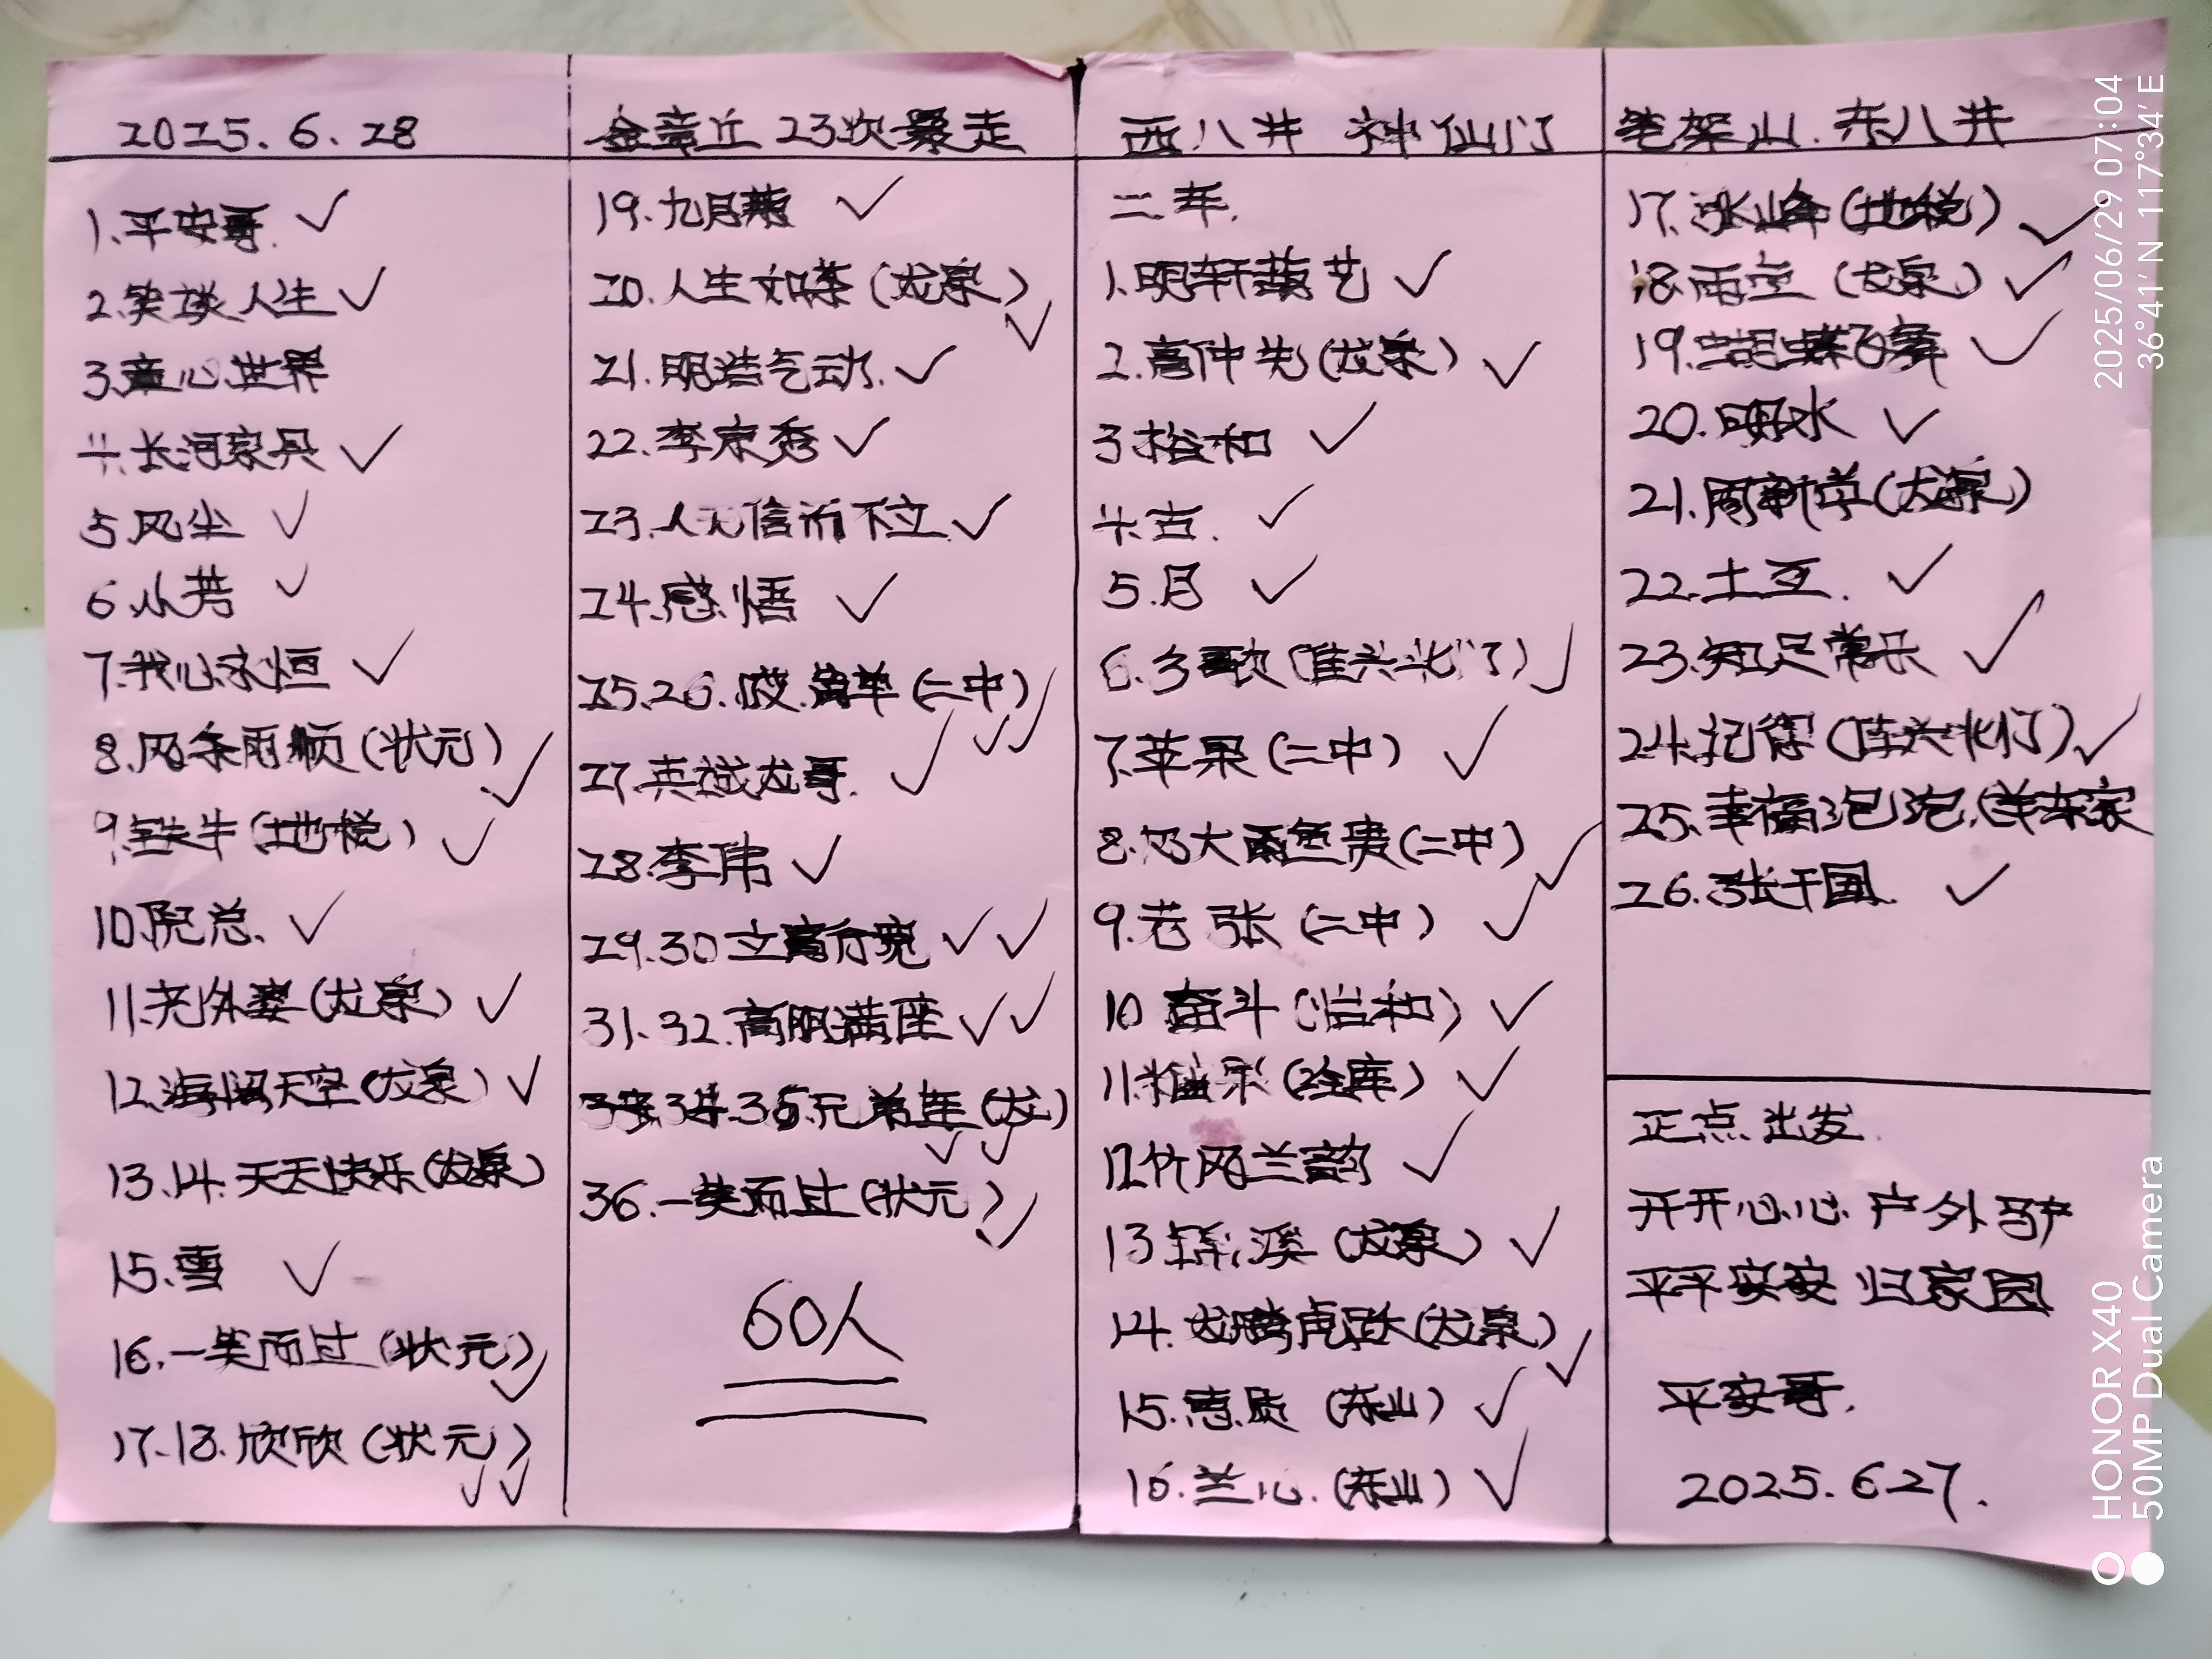 2025.6.28
1.平安哥. ✓
2.笑谈人生 ✓
3.童心世界
4.长河家丹 ✓
5.风尘 ✓
6.小芳 ✓
7.我心永恒 ✓
8.风条雨顺(状元) ✓
9.铁牛(地税) ✓
10.倪总. ✓
11.老外婆(龙泉) ✓
12.海阔天空(龙泉) ✓
13.14.天天快乐(龙泉)
15.雪 ✓
16.一笑而过(状元) ✓
17.18.欣欣(状元) ✓✓
金章丘23次暴走
19.九月菊 ✓
20.人生如茶(龙泉) ✓
21.明浩气动. ✓
22.李宗秀 ✓
23.人无信而不立 ✓
24.感悟 ✓
25.26.简单(二中) ✓✓
27.英城龙哥. ✓
28.李伟 ✓
29.30立高行宽 ✓✓
31.32.高朋满座 ✓✓
33.34.35.兄弟连(龙) ✓✓
36.一笑而过(状元) ✓
60人
西八井 神仙门
二车.
1.明轩藕艺 ✓
2.高仲先(龙泉) ✓
3.裕和 ✓
4.古. ✓
5.月 ✓
6.
7.苹果(二中) ✓
8.(二中) ✓
9.老张(二中) ✓
10 奋斗 ✓
11.(冷库) ✓
12.竹风兰韵 ✓
13 溪(龙泉) ✓
14.龙腾虎跃(龙泉) ✓
15.惠质(东山) ✓
16.兰心.(东山) ✓
笔架山.东八井
17.张山峰(地税) ✓
18.雨空(龙泉) ✓
19.蝴蝶飞舞 ✓
20.明水 ✓
21.周新(龙泉)
22.土豆. ✓
23.知足常乐 ✓
24.记得 ✓
25.幸福泡泡.(羊车家
26.张干国. ✓
正点出发.
开开心心户外驴
平平安安归家园
平安哥.
2025.6.27.
2025/06/29 07:04
36°41′N 117°34′E
HONOR X40
50MP Dual Camera